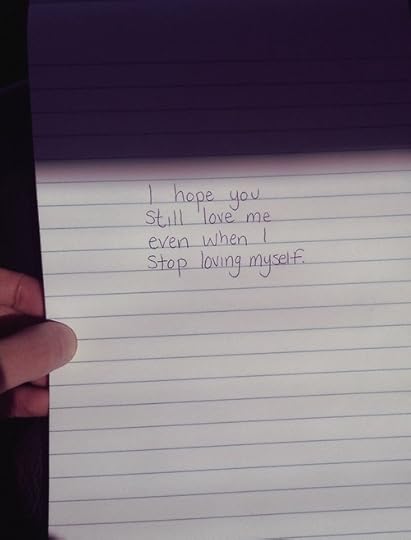 I hope you
still love me
even when I
stop loving myself.